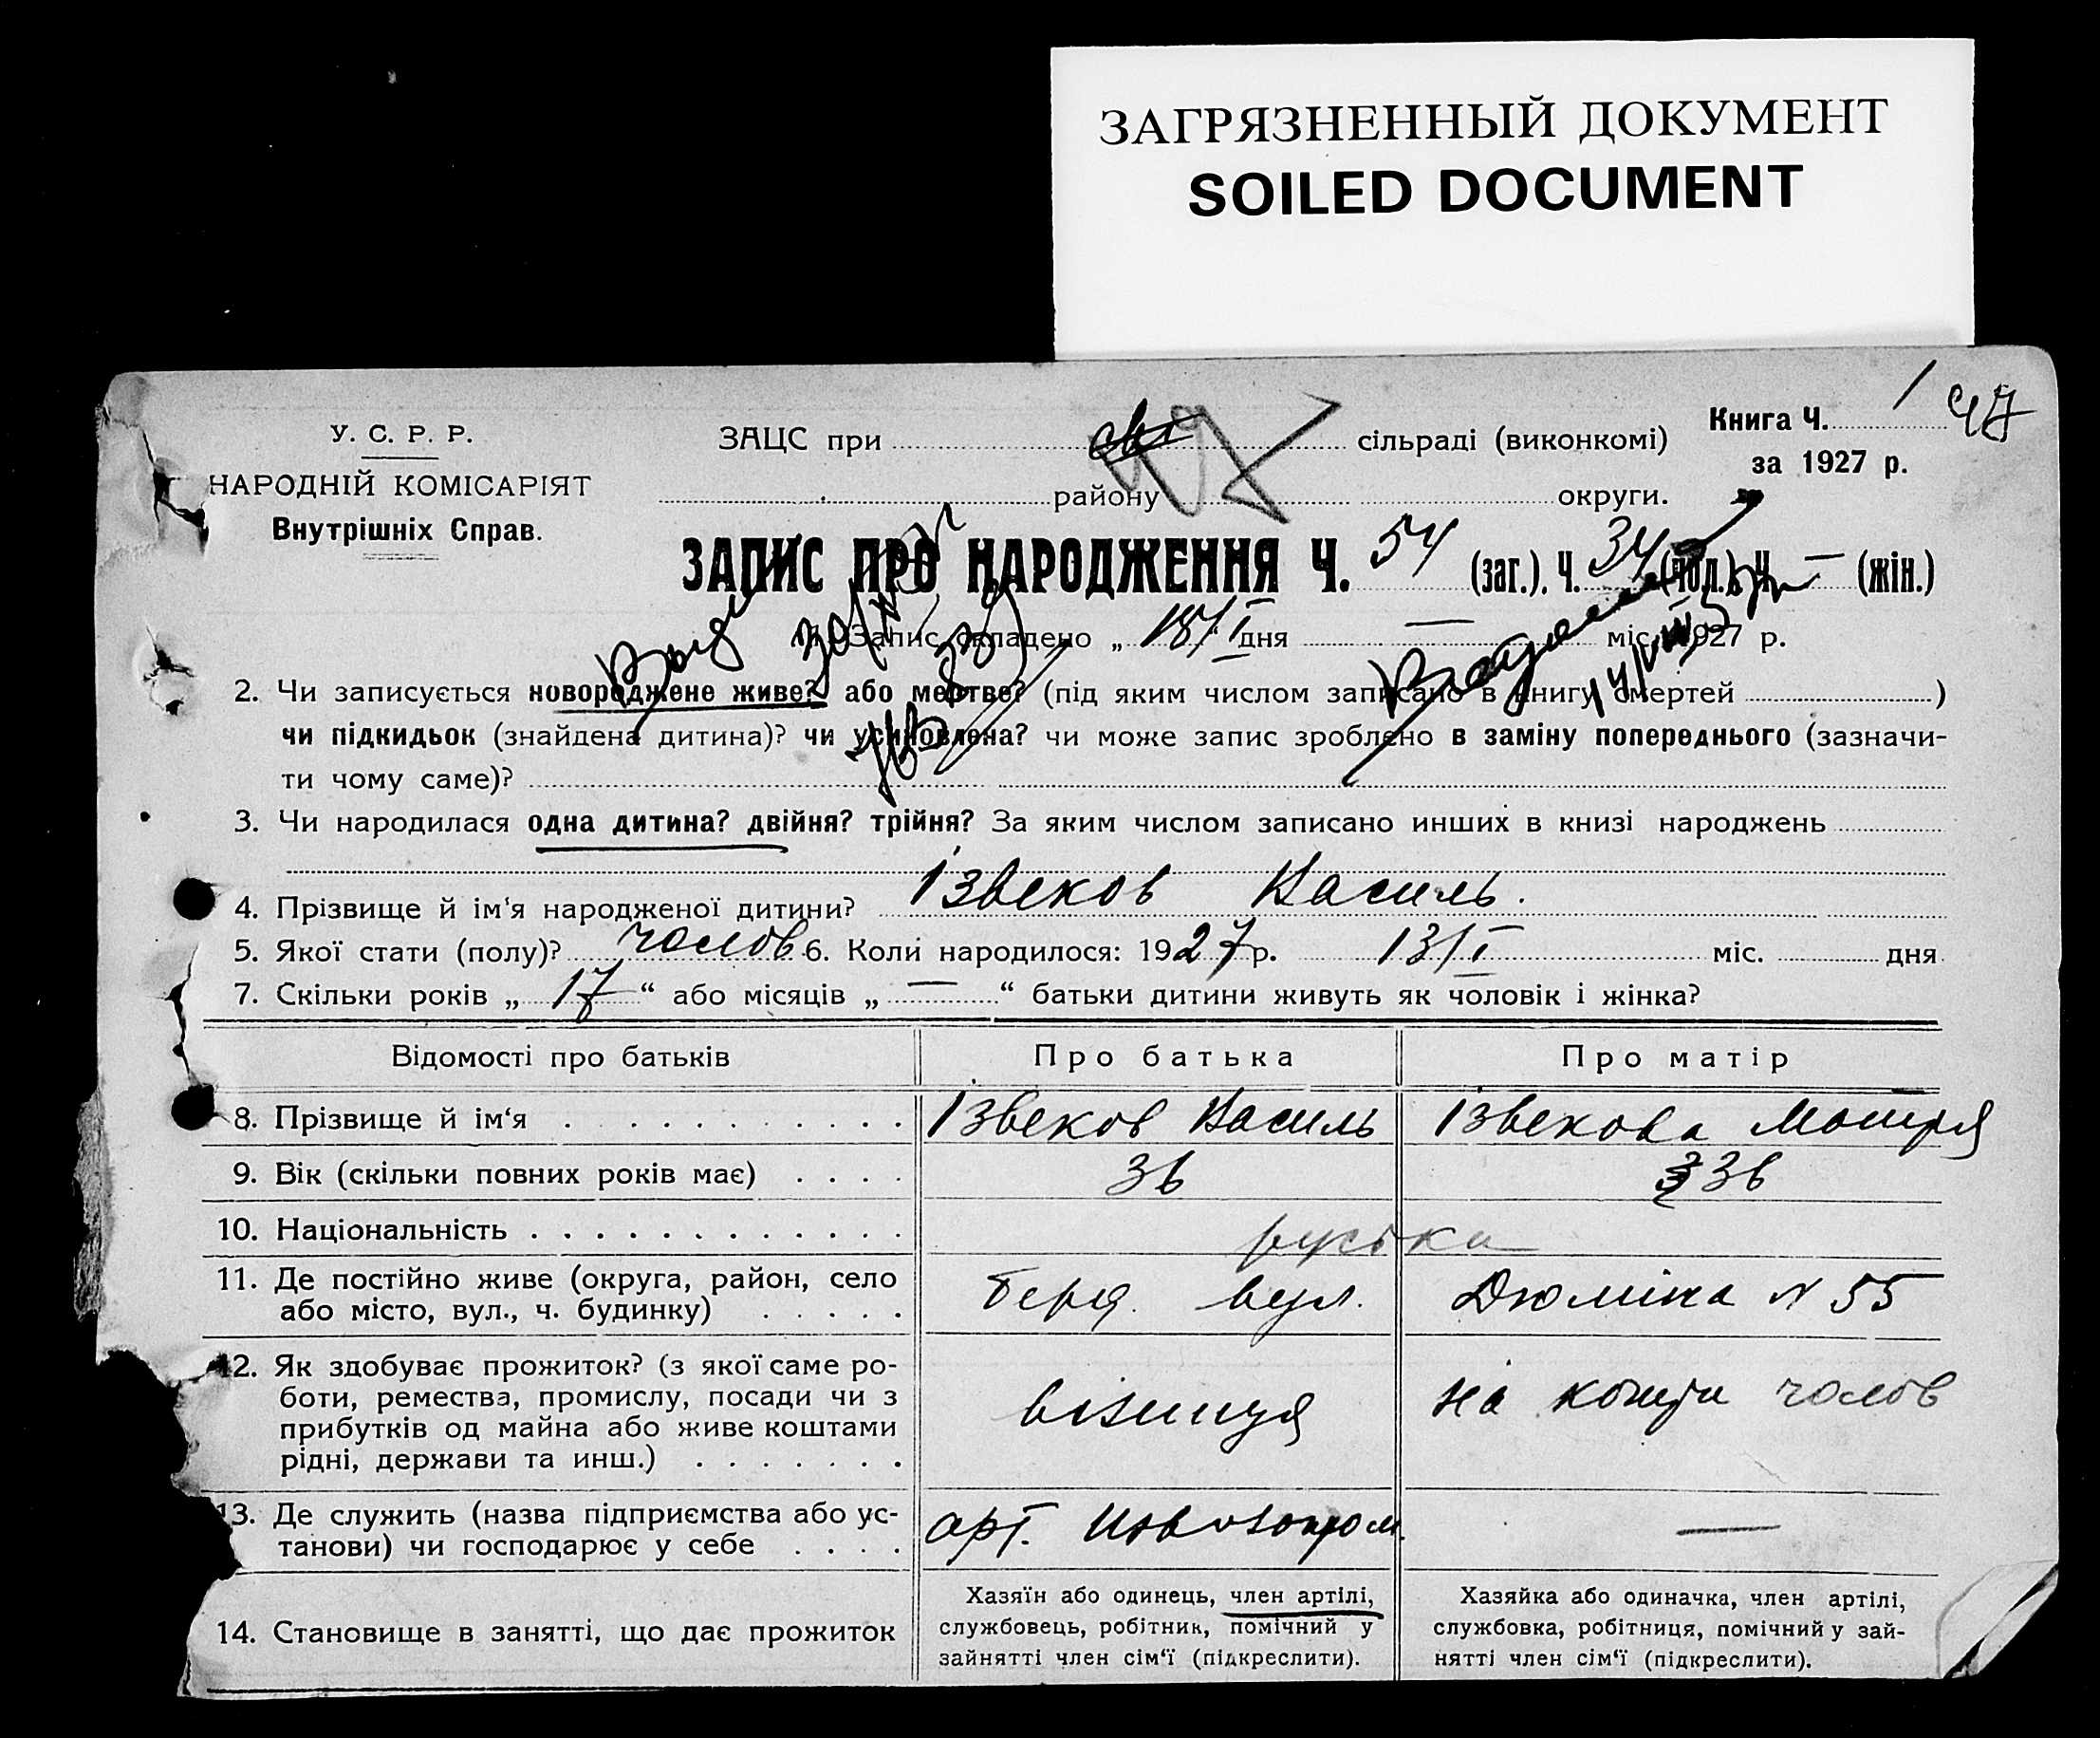 ЗАГРЯЗНЕННЫЙ ДОКУМЕНТ
SOILED DOCUMENT
У. С. Р. Р.
НАРОДНІЙ КОМІСАРІЯТ
Внутрішніх Справ.
ЗАЦС при сільраді (виконкомі)
району округи.
Книга Ч. 1 47
за 1927 р.
ЗАПИС ПРО НАРОДЖЕННЯ Ч. 54 (заг.). Ч. 34 (чол.). Ч. — (жін.)
1. Запис складено „ 18/I “ дня — міс. 1927 р.
2. Чи записується новороджене живе? або мертве? (під яким числом записано в книгу смертей )
чи підкидьок (знайдена дитина)? чи усиновлена? чи може запис зроблено в заміну попереднього (зазначи-
ти чому саме)?
3. Чи народилася одна дитина? двійня? трійня? За яким числом записано инших в книзі народжень
4. Прізвище й ім'я народженої дитини? Ізвеков Василь.
5. Якої стати (полу)? чолов 6. Коли народилося: 1927 р. 13/I міс. дня
7. Скільки років „ 17 “ або місяців „ — “ батьки дитини живуть як чоловік і жінка?
Відомості про батьків Про батька Про матір
8. Прізвище й ім‘я Ізвеков Василь Ізвекова Мотря
9. Вік (скільки повних років має) 36 36
10. Національність руська
11. Де постійно живе (округа, район, село
або місто, вул., ч. будинку) Берд. вул. Дюміна N 55
12. Як здобуває прожиток? (з якої саме ро-
боти, ремества, промислу, посади чи з
прибутків од майна або живе коштами
рідні, держави та инш.) візниця на кошти чолов
13. Де служить (назва підприємства або ус-
танови) чи господарює у себе арт. —
14. Становище в занятті, що дає прожиток
Хазяїн або одинець, член артілі,
службовець, робітник, помічний у
зайнятті член сім‘ї (підкреслити).
Хазяйка або одиначка, член артілі,
службовка, робітниця, помічний у зай-
нятті член сім‘ї (підкреслити).